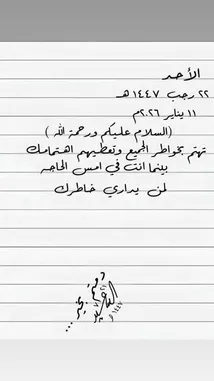 الأحد
٢٢ رجب ١٤٤٧ هـ
١١ يناير ٢٠٢٦م
(السلام عليكم ورحمة الله)
تهتم بخواطر الجميع وتعطيهم اهتمامك
بينما انت في امس الحاجه
لمن يداري خاطرك
دمتم بخير...